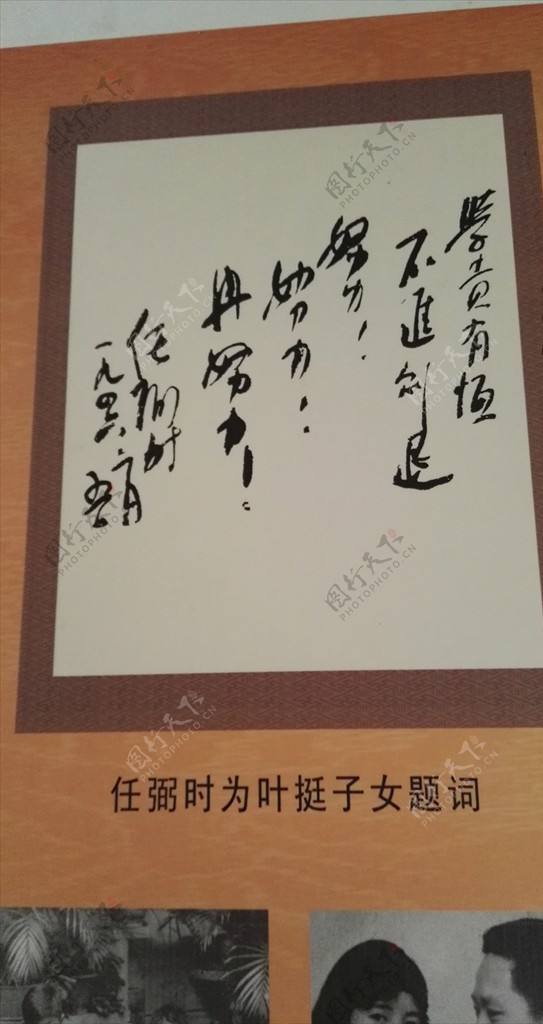 學贵有恒
不進则退
努力！
努力！
再努力！
任弼时
一九四六、
任弼时为叶挺子女题词
图行天下
PHOTOPHOTO.CN